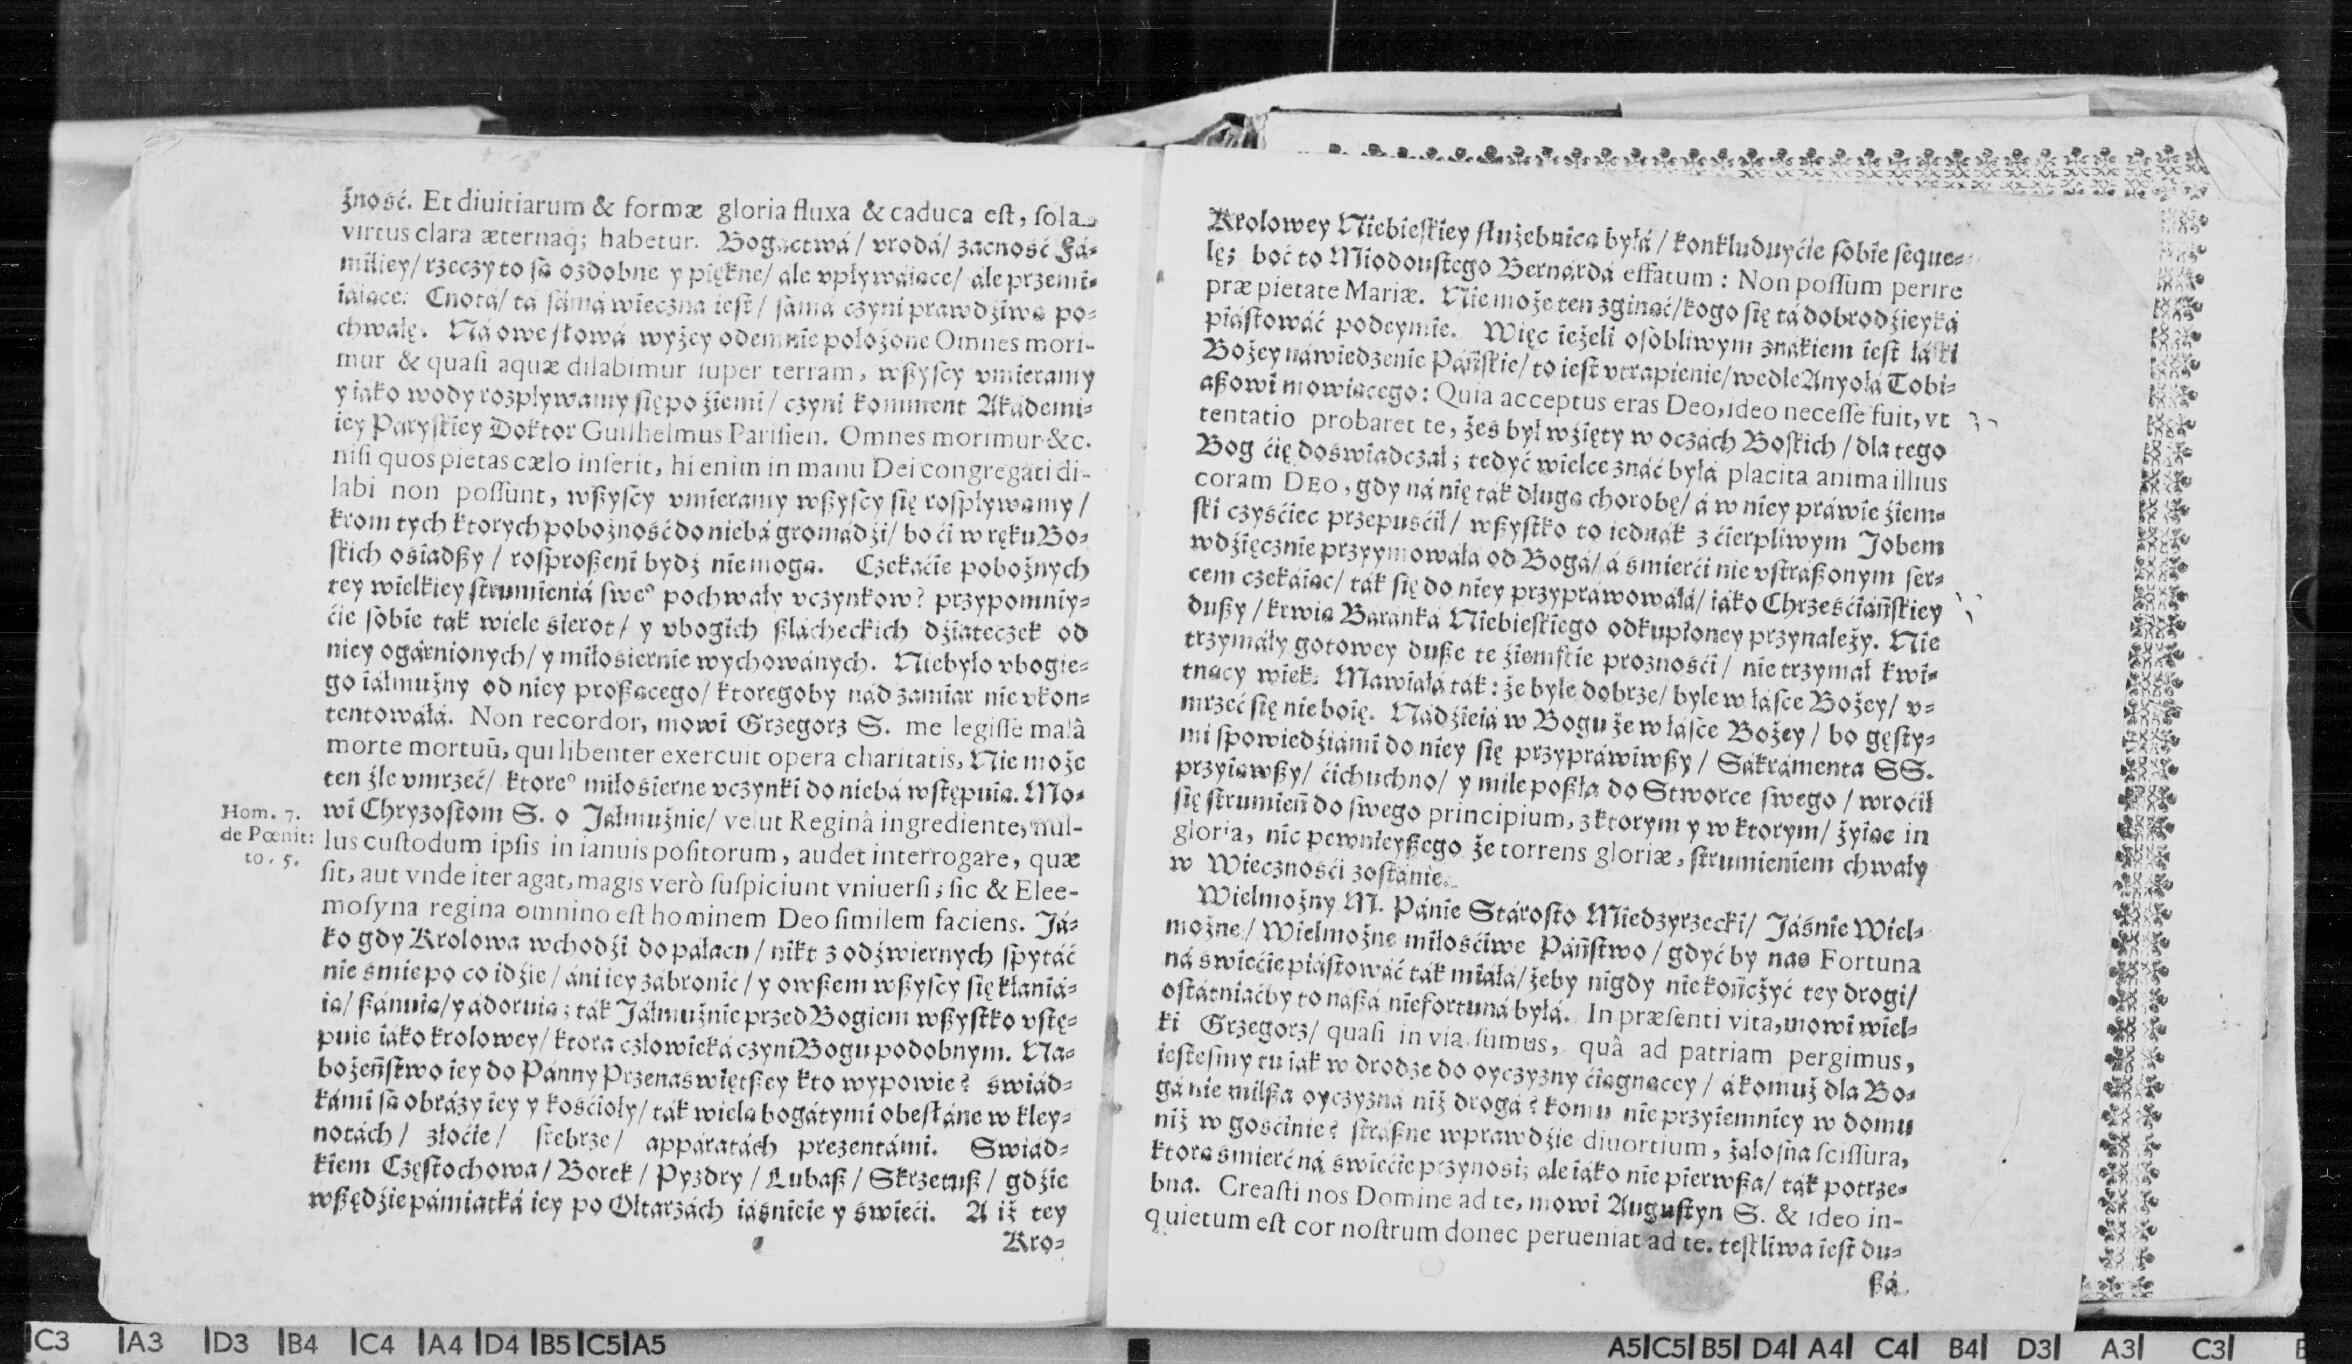 żność. Et diuitiarum & formæ gloria fluxa & caduca eſt, ſola
virtus clara æternaq; habetur. Bogactwá/ vrodá/ zacność Fá-
miliey/ rzeczy to ſą ozdobne y piękne/ ale vpływáiące/ ale przemi-
iáiące: Cnotá/ tá ſámá wieczna ieſt/ ſámá czyni prawdźiwą po-
chwałę. Ná owe słowá wyżey odemnie położone Omnes mori-
mur & quaſi aquæ dilabimur ſuper terram, wßyſcy vmieramy
y iáko wody rozpływamy się po źiemi/ czyni komment Akádemi-
iey Páryſkiey Doktor Guilhelmus Pariſien. Omnes morimur &c.
niſi quos pietas cælo inſerit, hi enim in manu Dei congregati di-
labi non poſſunt, wßyſcy vmieramy wßyſcy się roſpływamy/
krom tych ktorych pobożność do niebá gromádźi/ bo ći w ręku Bo-
ſkich ośiadßy/ roſproßeni bydź niemogą. Czekaćie pobożnych
tey wielkiey ſtrumieniá ſwe° pochwały vczynkow? przypomniy-
ćie ſobie tak wiele śierot/ y vbogich ßlácheckich dźiateczek od
niey ogárnionych/ y miłośiernie wychowánych. Niebyło vbogie-
go iáłmużny od niey proßącego/ ktoregoby nád zamiar nie vkon-
tentowáłá. Non recordor, mowi Grzegorz S. me legiſſe malâ
morte mortuũ, qui libenter exercuit opera charitatis, Nie może
ten źle vmrzeć/ ktore° miłośierne vczynki do niebá wſtępuią. Mo-
wi Chryzoſtom S. o Jáłmużnie/ velut Reginâ ingrediente, nul-
Hom. 7.
de Pœnit:
to. 5.
lus cuſtodum ipſis in ianuis poſitorum, audet interrogare, quæ
ſit, aut vnde iter agat, magis verò ſuſpiciunt vniuerſi; ſic & Elee-
moſyna regina omnino eſt hominem Deo ſimilem faciens. Já-
ko gdy Krolowa wchodźi do páłacu/ nikt z odźwiernych ſpytáć
nie śmie po co idźie/ áni iey zábronić/ y owßem wßyſcy się kłaniá-
ią/ ßánuią/ y adoruią; ták Jáłmużnie przed Bogiem wßyſtko vſtę-
puie iáko krolowey/ ktora człowieká czyni Bogu podobnym. Na-
bożeńſtwo iey do Pánny Przenaświętßey kto wypowie? świád-
kámi ſą obrázy iey y kośćioły/ ták wielą bogátymi obeſłáne w kley-
notách/ złoćie/ ſrebrze/ appáratách prezentámi. Swiád-
kiem Częſtochowa/ Borek/ Pyzdry/ Lubaß/ Skrzetuß/ gdźie
wßędźie pámiątká iey po Ołtarzách iáśnieie y świeći. A iż tey
Kro-
Krolowey Niebieſkiey ſłużebnicą byłá/ konkluduyćie ſobie ſeque-
lę; boć to Miodouſtego Bernárdá effatum: Non poſſum perire
præ pietate Mariæ. Nie może ten zginąć/ kogo się tá dobrodźieyká
piáſtowáć podeymie. Więc ieżeli oſobliwym znákiem ieſt łáſki
Bożey náwiedzenie Páńſkie/ to ieſt vtrapienie/ wedle Anyołá Tobi-
aßowi mowiącego: Quia acceptus eras Deo, ideo neceſſe fuit, vt
tentatio probaret te, żeś był wźięty w oczách Boſkich/ dla tego
Bog ćię doświadczał; tedyć wielce znáć byłá placita anima illius
coram DEO, gdy ná nię ták długą chorobę/ á w niey práwie źiem-
ſki czyśćiec przepuśćił/ wßyſtko to iednák z ćierpliwym Jobem
wdźięcznie przyymowáła od Bogá/ á śmierći nie vſtráßonym ſer-
cem czekáiąc/ ták się do niey przypráwowáłá/ iáko Chrześćiáńſkiey
dußy/ krwią Baranká Niebieſkiego odkupłoney przynależy. Nie
trzymáły gotowey duße te źiemſkie prożnośći/ nie trzymał kwi-
tnący wiek. Mawiałá ták: że byle dobrze/ byle w łáſce Bożey/ v-
mrzeć się nie boię. Nádźieiá w Bogu że w łáſce Bożey/ bo gęſty-
mi ſpowiedźiámi do niey się przypráwiwßy/ Sákrámenta SS.
przyiąwßy/ ćichuchno/ y mile poßłá do Stworce ſwego/ wroćił
się ſtrumień do ſwego principium, z ktorym y w ktorym/ żyiąc in
gloria, nic pewnieyßego że torrens gloriæ, ſtrumieniem chwały
w Wiecznośći zoſtánie.
Wielmożny M. Pánie Stároſto Miedzyrzecki/ Jáśnie Wiel-
możne/ Wielmożne miłośćiwe Páńſtwo/ gdyć by nas Fortuna
ná świećie piáſtowáć ták miáłá/ żeby nigdy nie kończyć tey drogi/
oſtátniaćby to náßá niefortuná byłá. In præſenti vita, mowi wiel-
ki Grzegorz/ quaſi in via ſumus, quâ ad patriam pergimus,
ieſteſmy tu iák w drodze do oyczyzny ćiągnącey/ á komuż dla Bo-
gá nie milßa oyczyzná niż drogá? komu nie przyiemniey w domu
niż w gośćinie? ſtráßne wprawdźie diuortium, żáłoſna ſciſſura,
ktorą śmierć ná świećie przynośi; ale iáko nie pierwßa/ ták potrze-
bna. Creaſti nos Domine ad te, mowi Auguſtyn S. & ideo in-
quietum eſt cor noſtrum donec perueniat ad te. teſkliwa ieſt du-
ßá